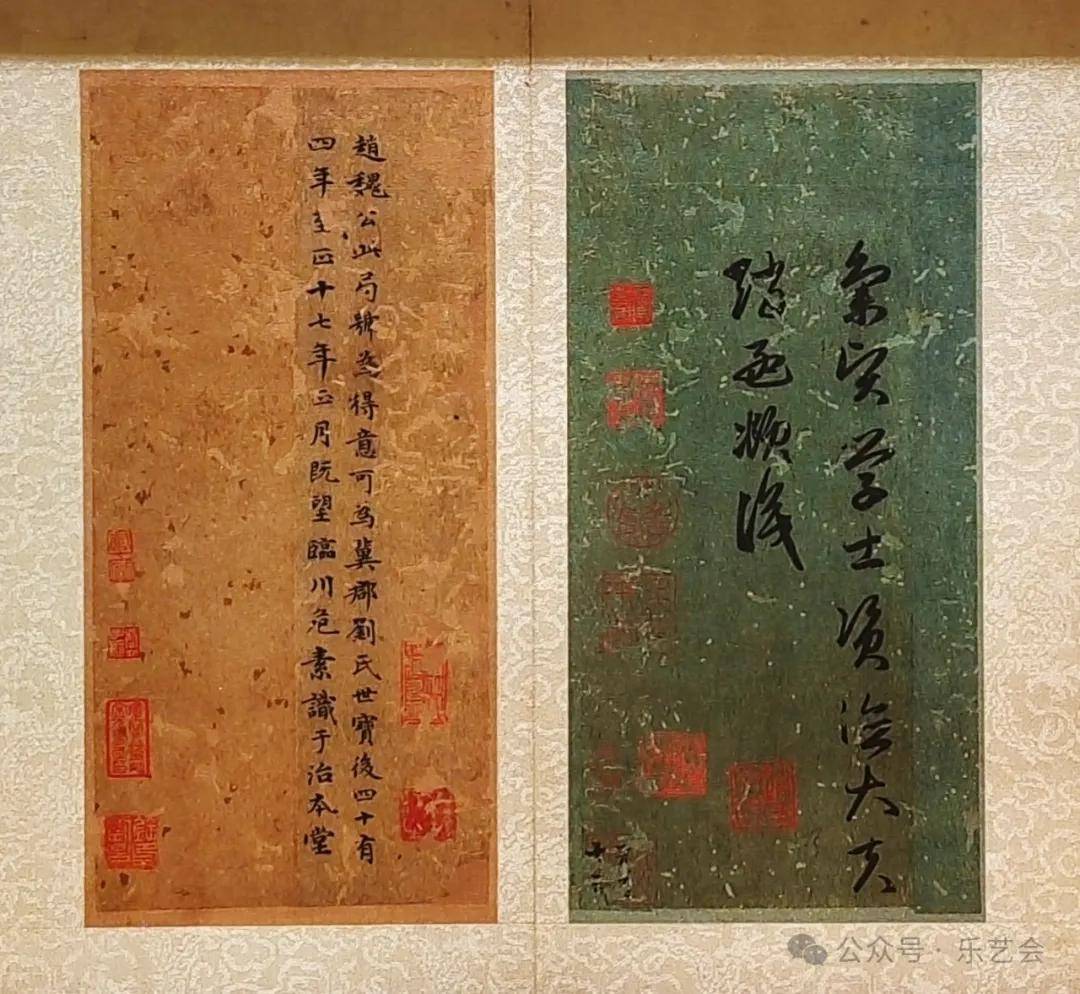 集賢学士資德大夫
趙孟頫識
趙魏公此局號為得意可為冀郡劉氏世寶後四十有
四年至正十七年正月既望臨川危素識于治本堂
公众号·乐艺会